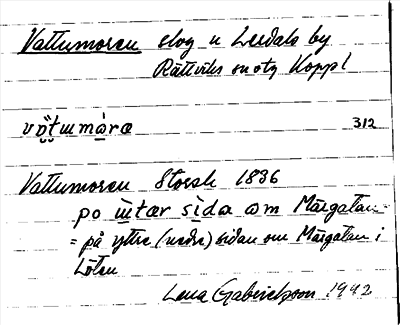 Vattumoren skog u Lerdals by
Rättviks sn oty Koppl
vö̤t̤umàra 312
Vattumoren Storsk 1836
po ùtær sìda om Märgatan =
= på yttre (nedre) sidan om Märgatan i
Löten
Lena Gabrielsson 1942